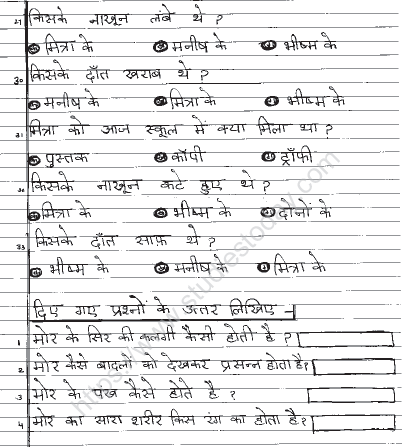 29 किसके नाखून लंबे थे ?
मित्रा के मनीष के भीष्म के
30 किसके दाँत खराब थे ?
मनीष के मित्रा के भीष्म के
31 मित्रा को आज स्कूल में क्या मिला था ?
पुस्तक कॉपी ट्रॉफी
32 किसके नाखून कटे हुए थे ?
मित्रा के भीष्म के दोनों के
33 किसके दाँत साफ़ थे ?
भीष्म के मनीष के मित्रा के
दिए गए प्रश्नों के उत्तर लिखिए -
1 मोर के सिर की कलगी कैसी होती है ?
2 मोर कैसे बादलों को देखकर प्रसन्न होता है?
3 मोर के पंख कैसे होते है ?
4 मोर का सारा शरीर किस रंग का होता है?
https://www.studiestoday.com